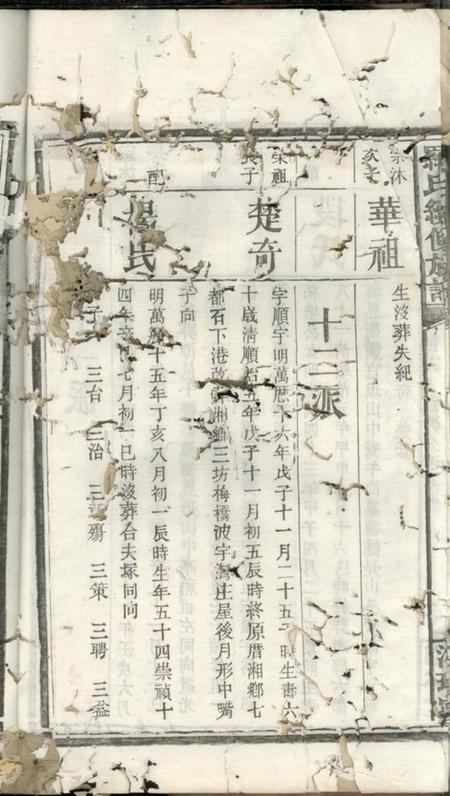 氏續修族譜
崇沐
次子
華祖
生沒葬失紀
十二派
榮祖
長子
楚奇
字順宇明萬曆十六年戊子十一月二十五子時生壽六
十歲清順治五年戊子十一月初五辰時終原厝湘鄉七
都石下港改葬湘鄉三坊梅橋波宇灣庄屋後月形中嘴
子向
配
楊氏
明萬曆十五年丁亥八月初一辰時生年五十四崇禎十
四年辛巳七月初一巳時沒葬合夫塚同向
子 三台 三治 殤 三策 三聘 三益